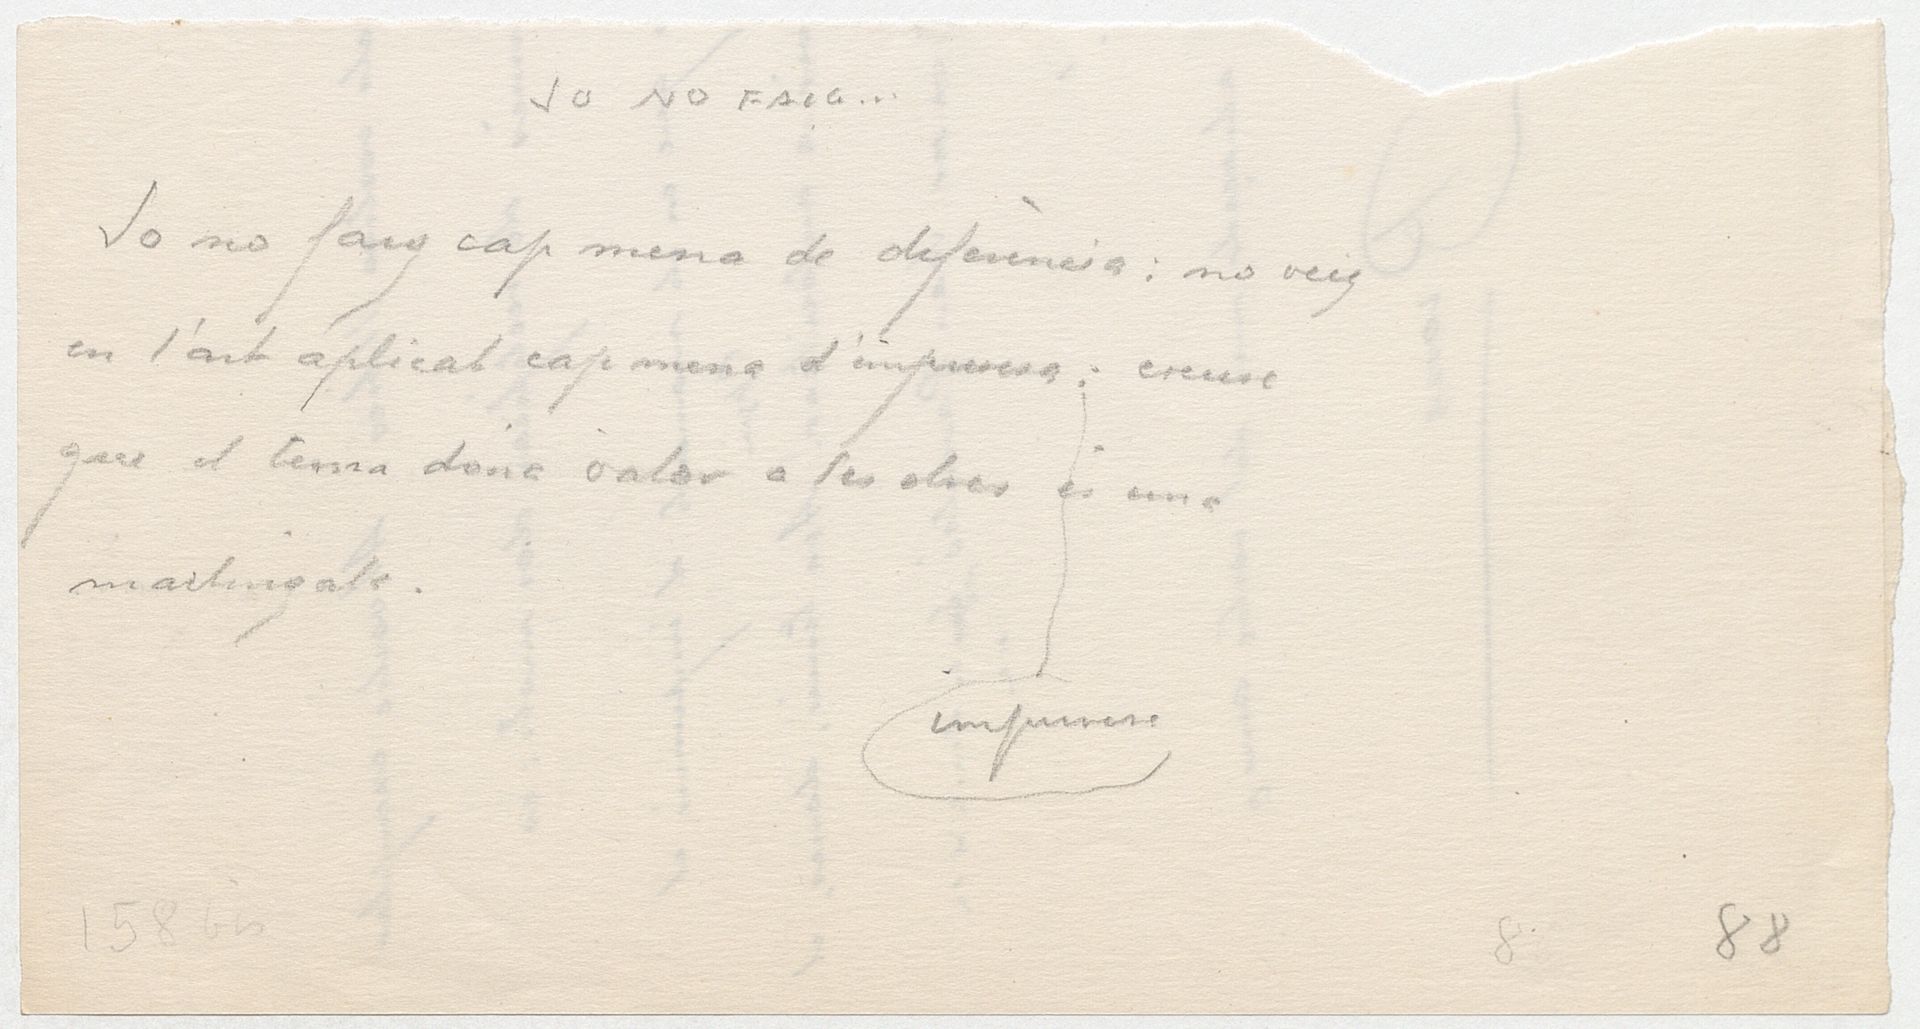 JO NO FAIG...
Jo no faig cap mena de diferència: no veig
en l'art aplicat cap mena d'impuresa: creure
que el tema dóna valor a les obres és una
martingala.
impuresa
158 bis
8
88